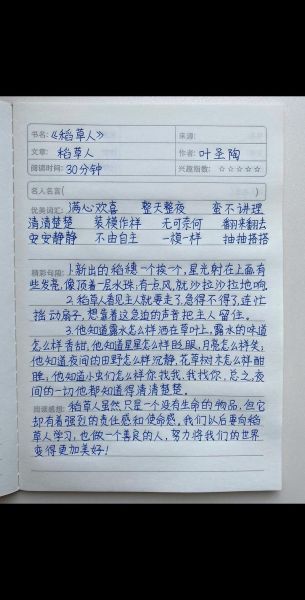 书名:《稻草人》 来源:
文章: 稻草人 作者: 叶圣陶
阅读时间: 30分钟 兴趣指数: ☆☆☆☆☆
名人名言(
优美词汇: 满心欢喜 整天整夜 蛮不讲理
清清楚楚 装模作样 无可奈何 翻来翻去
安安静静 不由自主 一模一样 抽抽搭搭
精彩句段: 1.新出的稻穗一个挨一个,星光射在上面有
些发亮,像顶着一层水珠,有点风,就沙拉沙拉地响。
2.稻草人看见主人就要走了,急得不得了,连忙
摇动扇子,想靠着这急迫的声音把主人留住。
3.他知道露水怎么样洒在草叶上,露水的味道
怎么样香甜;他知道星星怎么样眨眼,月亮怎么样笑;
他知道夜间的田野怎么样沉静,花草树木怎么样酣
睡;他知道小虫们怎么样你找我,我找你,总之,夜
间的一切他都知道得清清楚楚。
阅读感想: 稻草人虽然只是一个没有生命的物品,但它
却有着强烈的责任感和使命感。我们以后要向稻
草人学习,也做一个善良的人,努力将我们的世界
变得更加美好!